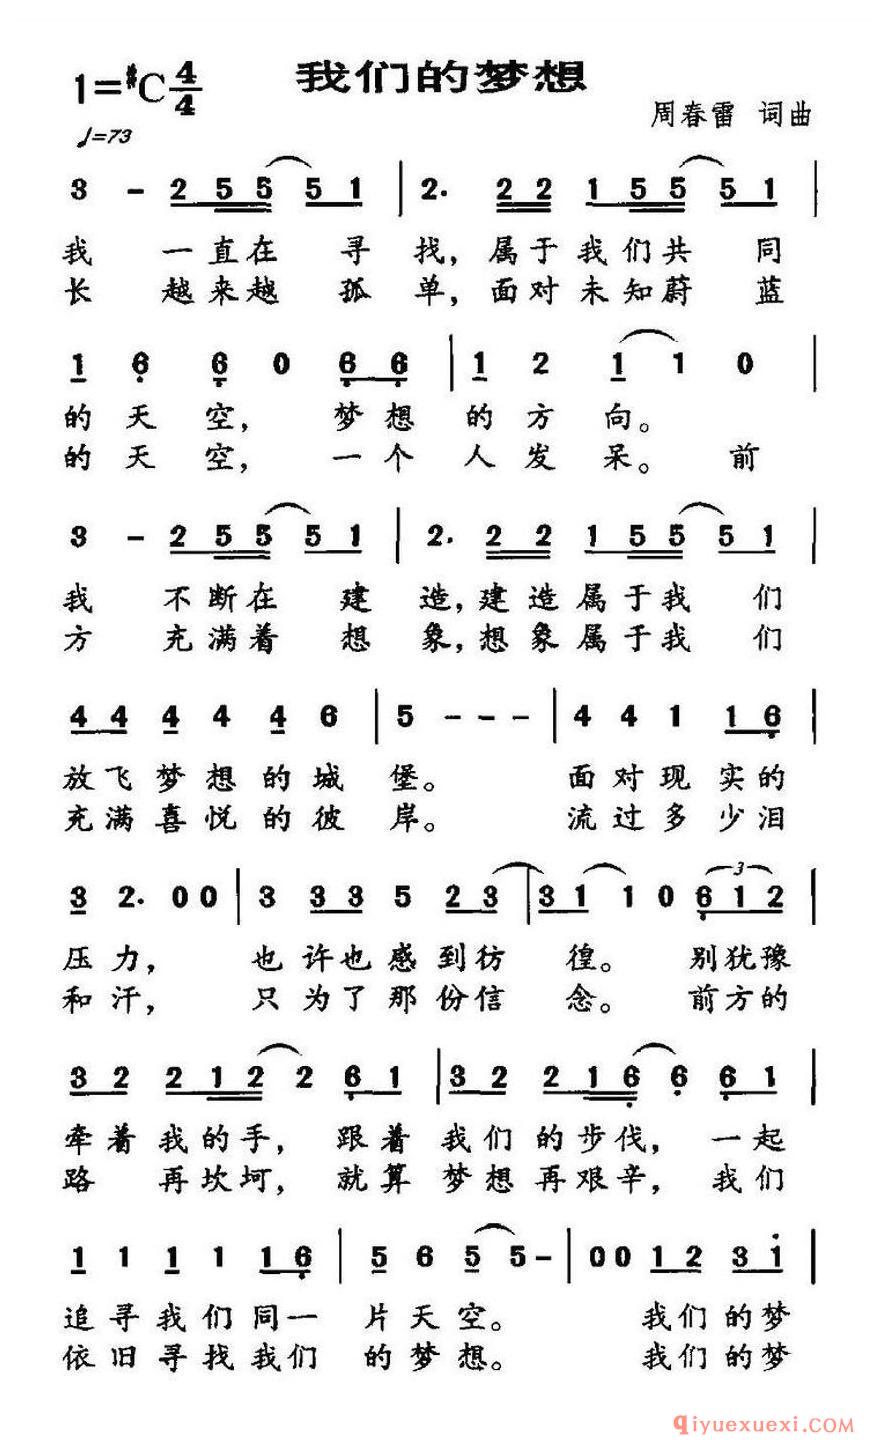 我们的梦想
1=#C 4/4
周春雷 词曲
♩=73
3 - 2 5 5 5 1 | 2. 2 2 1 5 5 5 1 |
我 一直在 寻 找，属于我们共 同
长 越来越 孤 单，面对未知蔚 蓝
1 6 6 0 6 6 | 1 2 1 1 0 |
的天空，梦想 的方向。
的天空，一个 人发呆。前
3 - 2 5 5 5 1 | 2. 2 2 1 5 5 5 1 |
我 不断在 建 造，建造属于我 们
方 充满着 想 象，想象属于我 们
4 4 4 4 4 6 | 5 - - - | 4 4 1 1 6 |
放飞梦想的城 堡。 面对现实的
充满喜悦的彼 岸。 流过多少泪
3 2. 0 0 | 3 3 3 5 2 3 | 3 1 1 0 6 1 2 |
压力， 也许也感到彷 徨。 别犹豫
和汗， 只为了那份信 念。 前方的
3 2 2 1 2 2 6 1 | 3 2 2 1 6 6 6 1 |
牵着我的手，跟着 我们的步伐，一起
路 再坎坷，就算 梦想再艰辛，我们
1 1 1 1 1 6 | 5 6 5 5 - | 0 0 1 2 3 1 |
追寻我们同一 片天空。 我们的梦
依旧寻找我们 的梦想。 我们的梦
qiyuexuexi.com